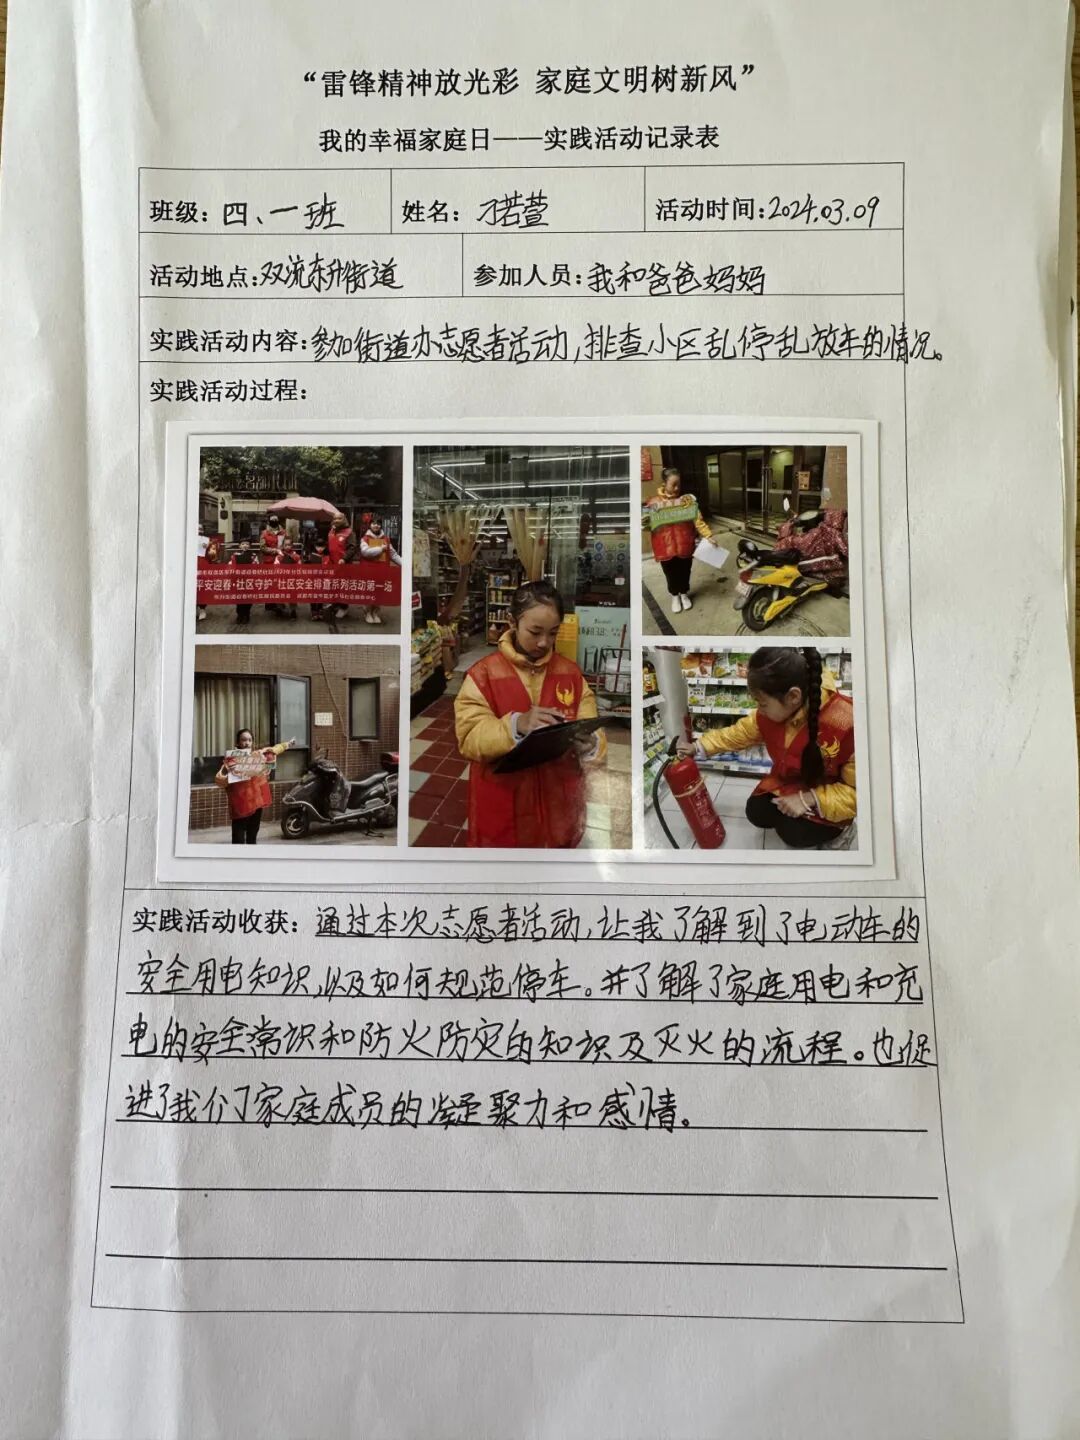 “雷锋精神放光彩 家庭文明树新风”
我的幸福家庭日——实践活动记录表
班级：四、一班 姓名：刁若萱 活动时间：2024.03.09
活动地点：双流东升街道 参加人员：我和爸爸妈妈
实践活动内容：参加街道办志愿者活动，排查小区乱停乱放车的情况。
实践活动过程：
平安迎春·社区守护“社区安全排查系列活动第一场
实践活动收获：通过本次志愿者活动，让我了解到了电动车的
安全用电知识，以及如何规范停车。并了解了家庭用电和充
电的安全常识和防火防灾的知识及灭火的流程。也促
进了我们家庭成员的凝聚力和感情。